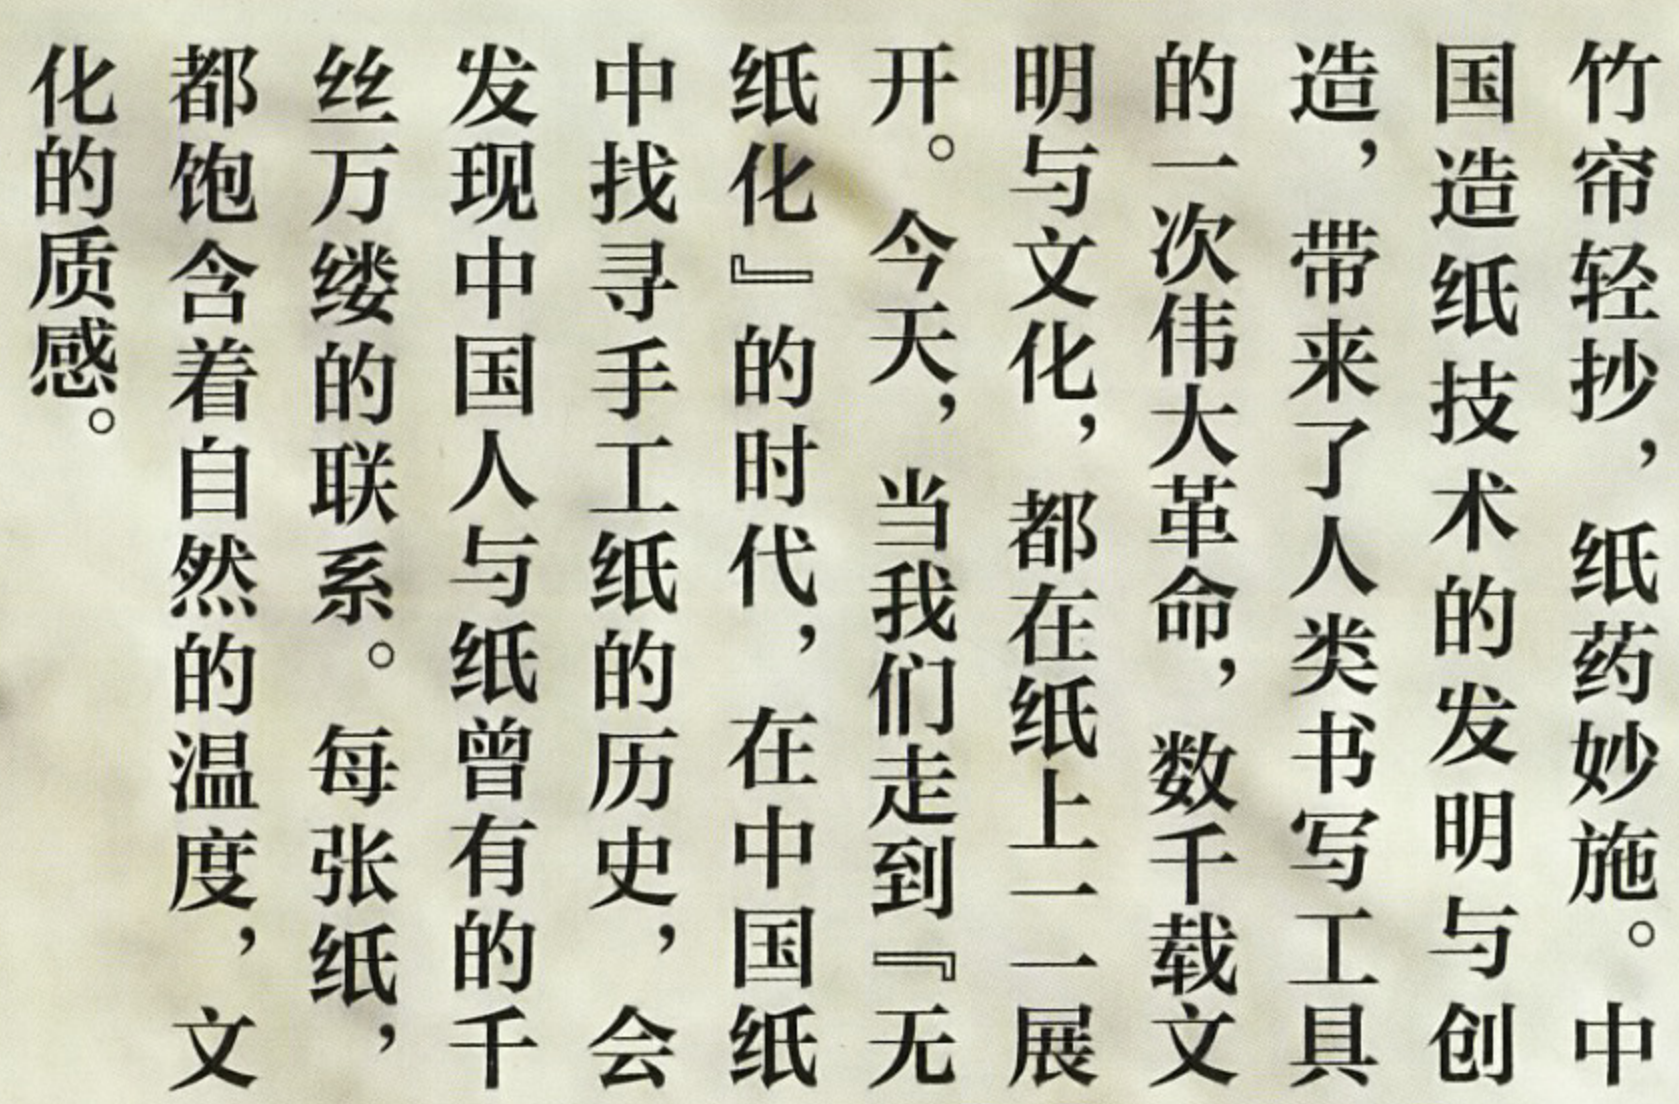 竹帘轻抄，纸药妙施。中
国造纸技术的发明与创
造，带来了人类书写工具
的一次伟大革命，数千载文
明与文化，都在纸上一一展
开。今天，当我们走到『无
纸化』的时代，在中国纸
中找寻手工纸的历史，会
发现中国人与纸曾有的千
丝万缕的联系。每张纸，
都饱含着自然的温度，文
化的质感。